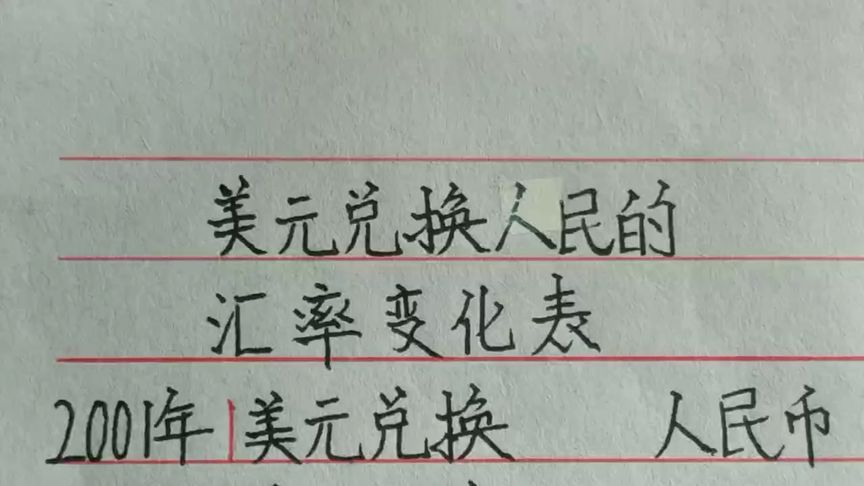 美元兑换人民的
汇率变化表
2001年1美元兑换 人民币